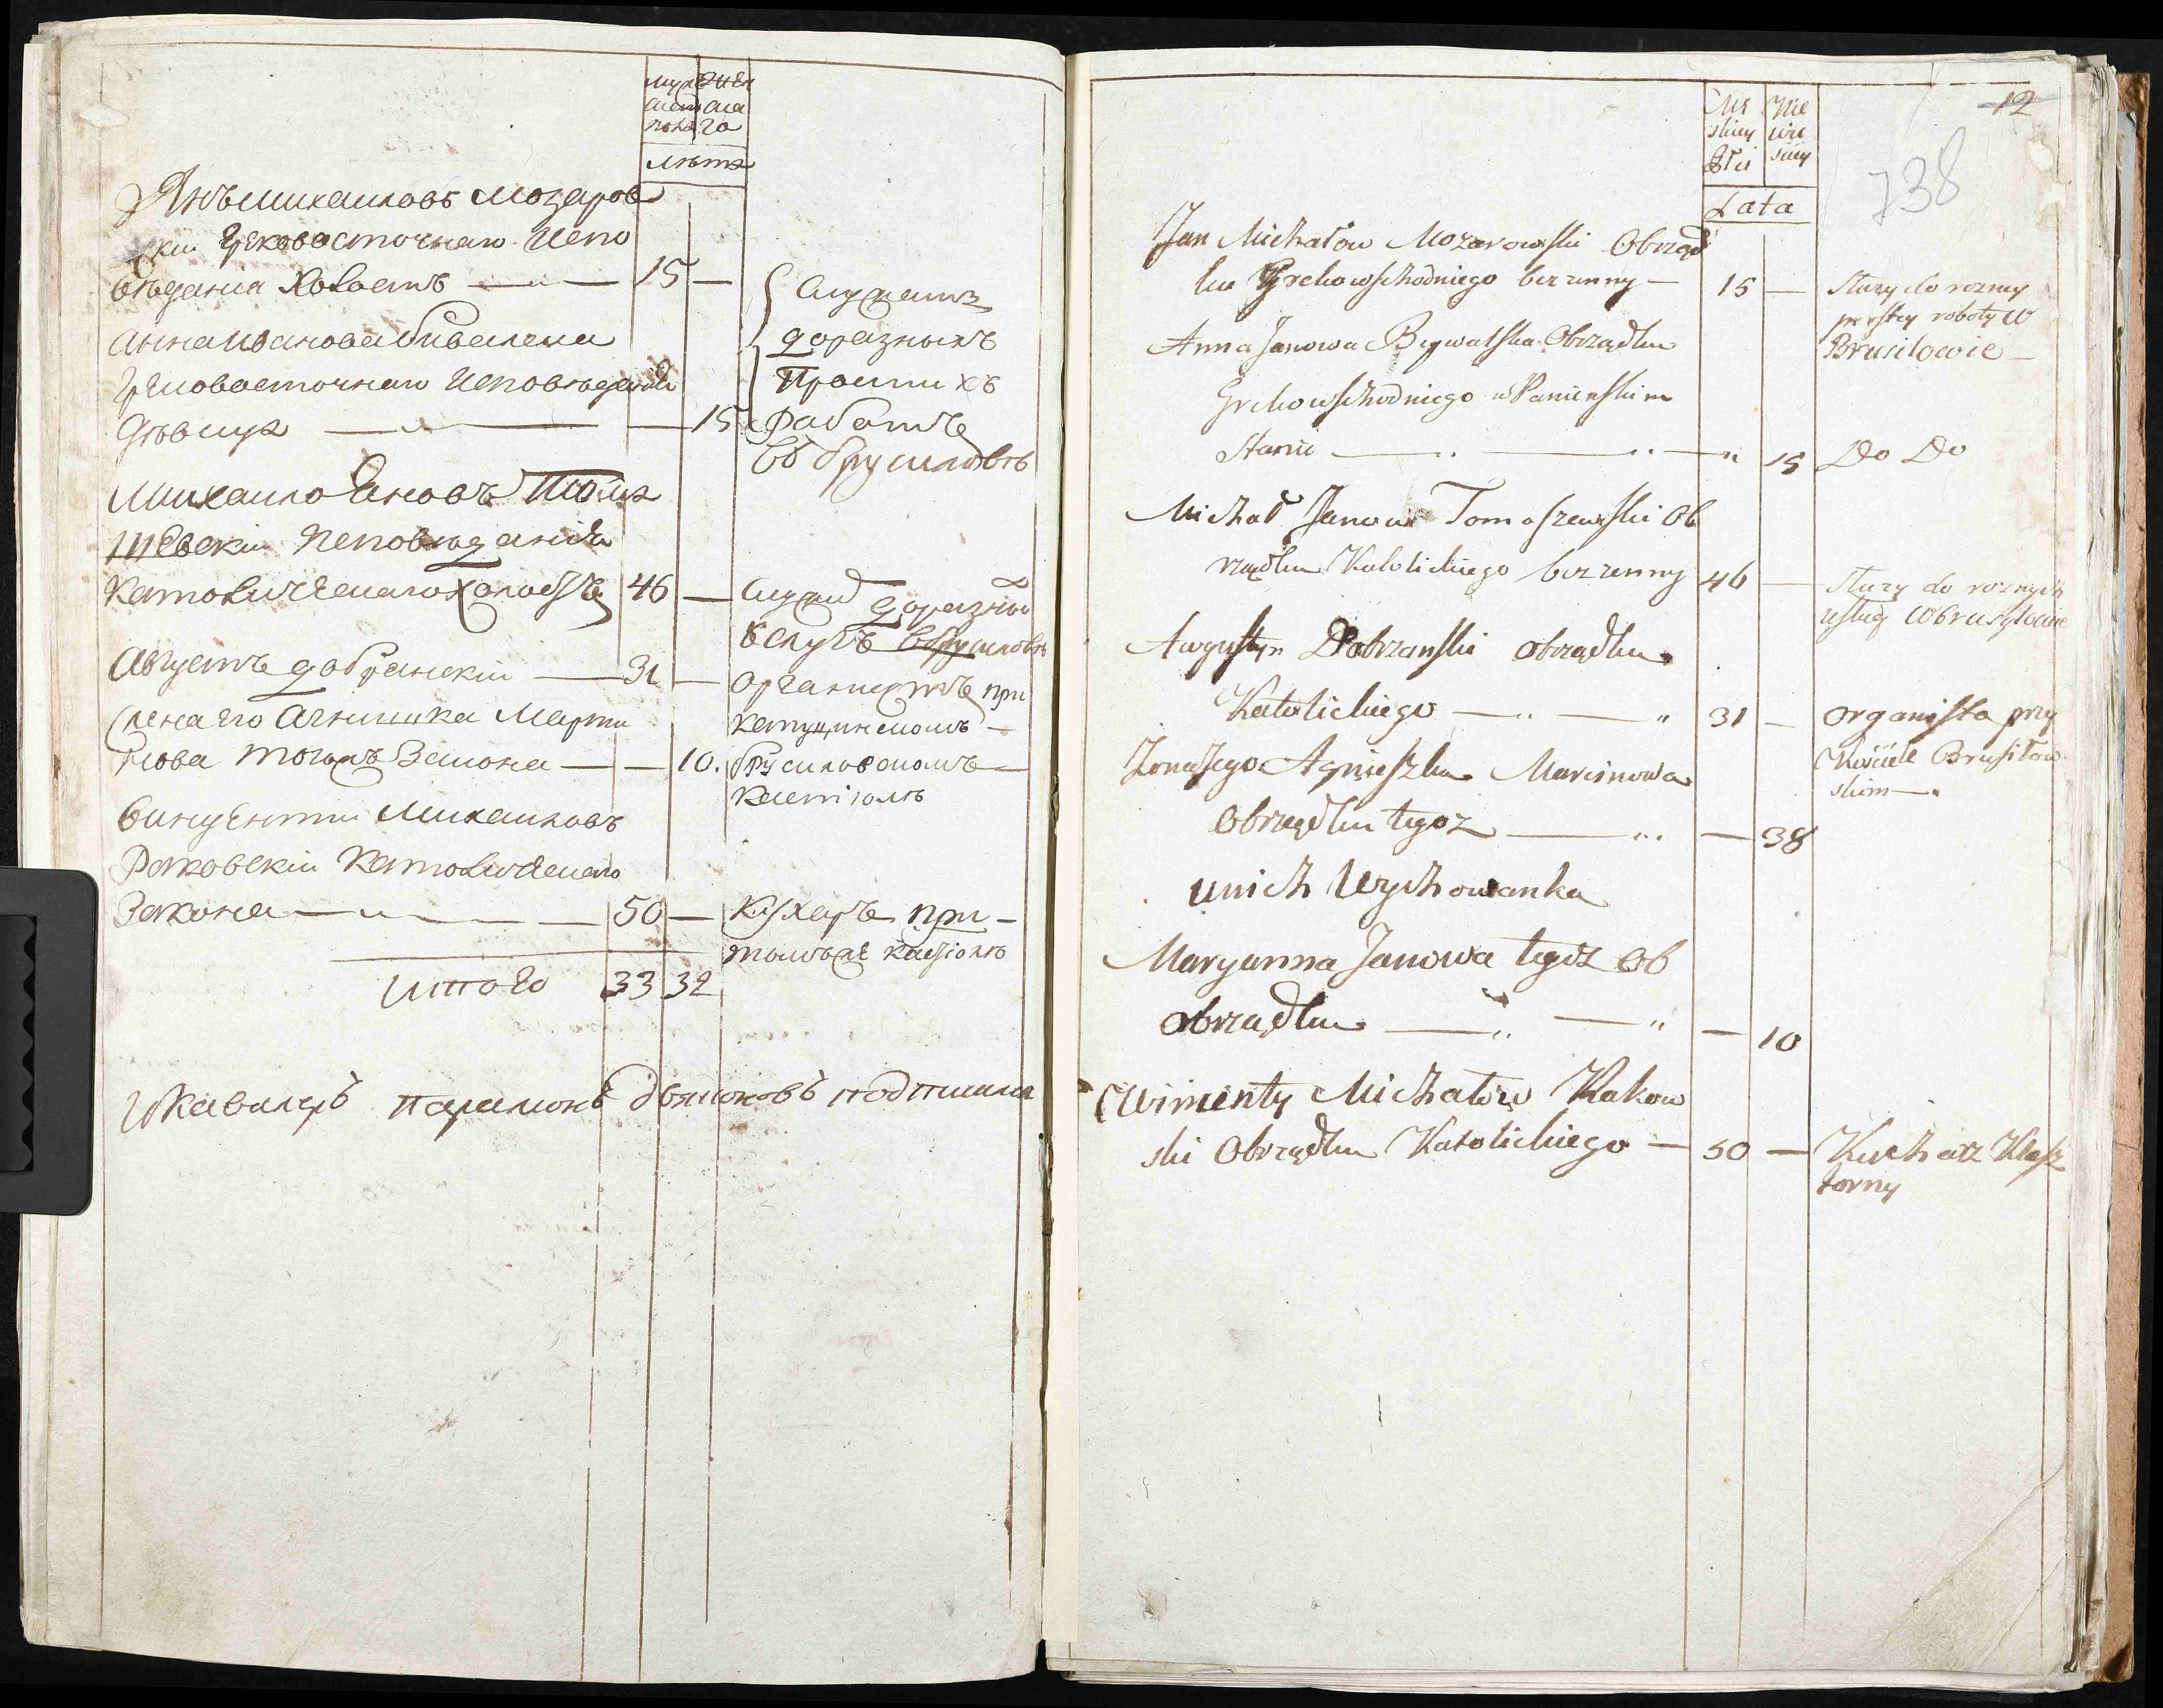 мужеска
пола
женска
го
лѣта
Янъ Михайловъ Мозаров
скій Грековосточнаго Испо
вѣданія Холостъ — 15 —
Служатъ
до разныхъ
Простихъ
работъ
въ Брусиловѣ
Анна Иванова Бивалска
Грековосточнаго Исповѣданія
Дѣвица — — 15
Михайло Яновъ Тома
шевскій Исповѣданія
Католическаго Холостъ 46 —
Служит до разной
услугъ въ Брусиловѣ
Августъ Добранскій — 31 —
Органистъ при
Жена его Агнишка Марти
нова тогожъ Закона — — 10.
Капуцинскомъ —
Брусиловскомъ
Костіолѣ
Винцентій Михайловъ
Раковскій Католическаго
Закона — 50 —
Кухаръ при —
томъже Костіолѣ
Итого 33 32
И Кавалеръ Парамонъ подписалъ
12
738
Mę
skiey
Płci
Nie
wie
sciey
Lata
Jan Michałow Mozarowski Obrząd
ku Grekowschodniego bezzenny — 15 —
Służy do rozney
prostey roboty w
Brusiłowie —
Anna Janowa Bywalska Obrządku
Grekowschodniego w Panienskim
Stanie — " — " — " 15 Do Do
Michał Janow Tomaszewski Ob
rządku Katolickiego bezzenny 46 —
Służy do roznych
usług w Brusyłowie
Augustyn Dobrzanski obrządku
Katolickiego — " — " 31 —
organista przy
Kościele Brusiłow
skim — "
Zona Jego Agnieszka Marcinowa
Obrządku tegoz — " — 38
u nich Wychowanka
Maryanna Janowa tegoz Ob
obrządku — " — " — 10
Wincenty Michałow Rakow
ski Obrządku Katolickiego — 50 —
Kucharz Klasz
torny